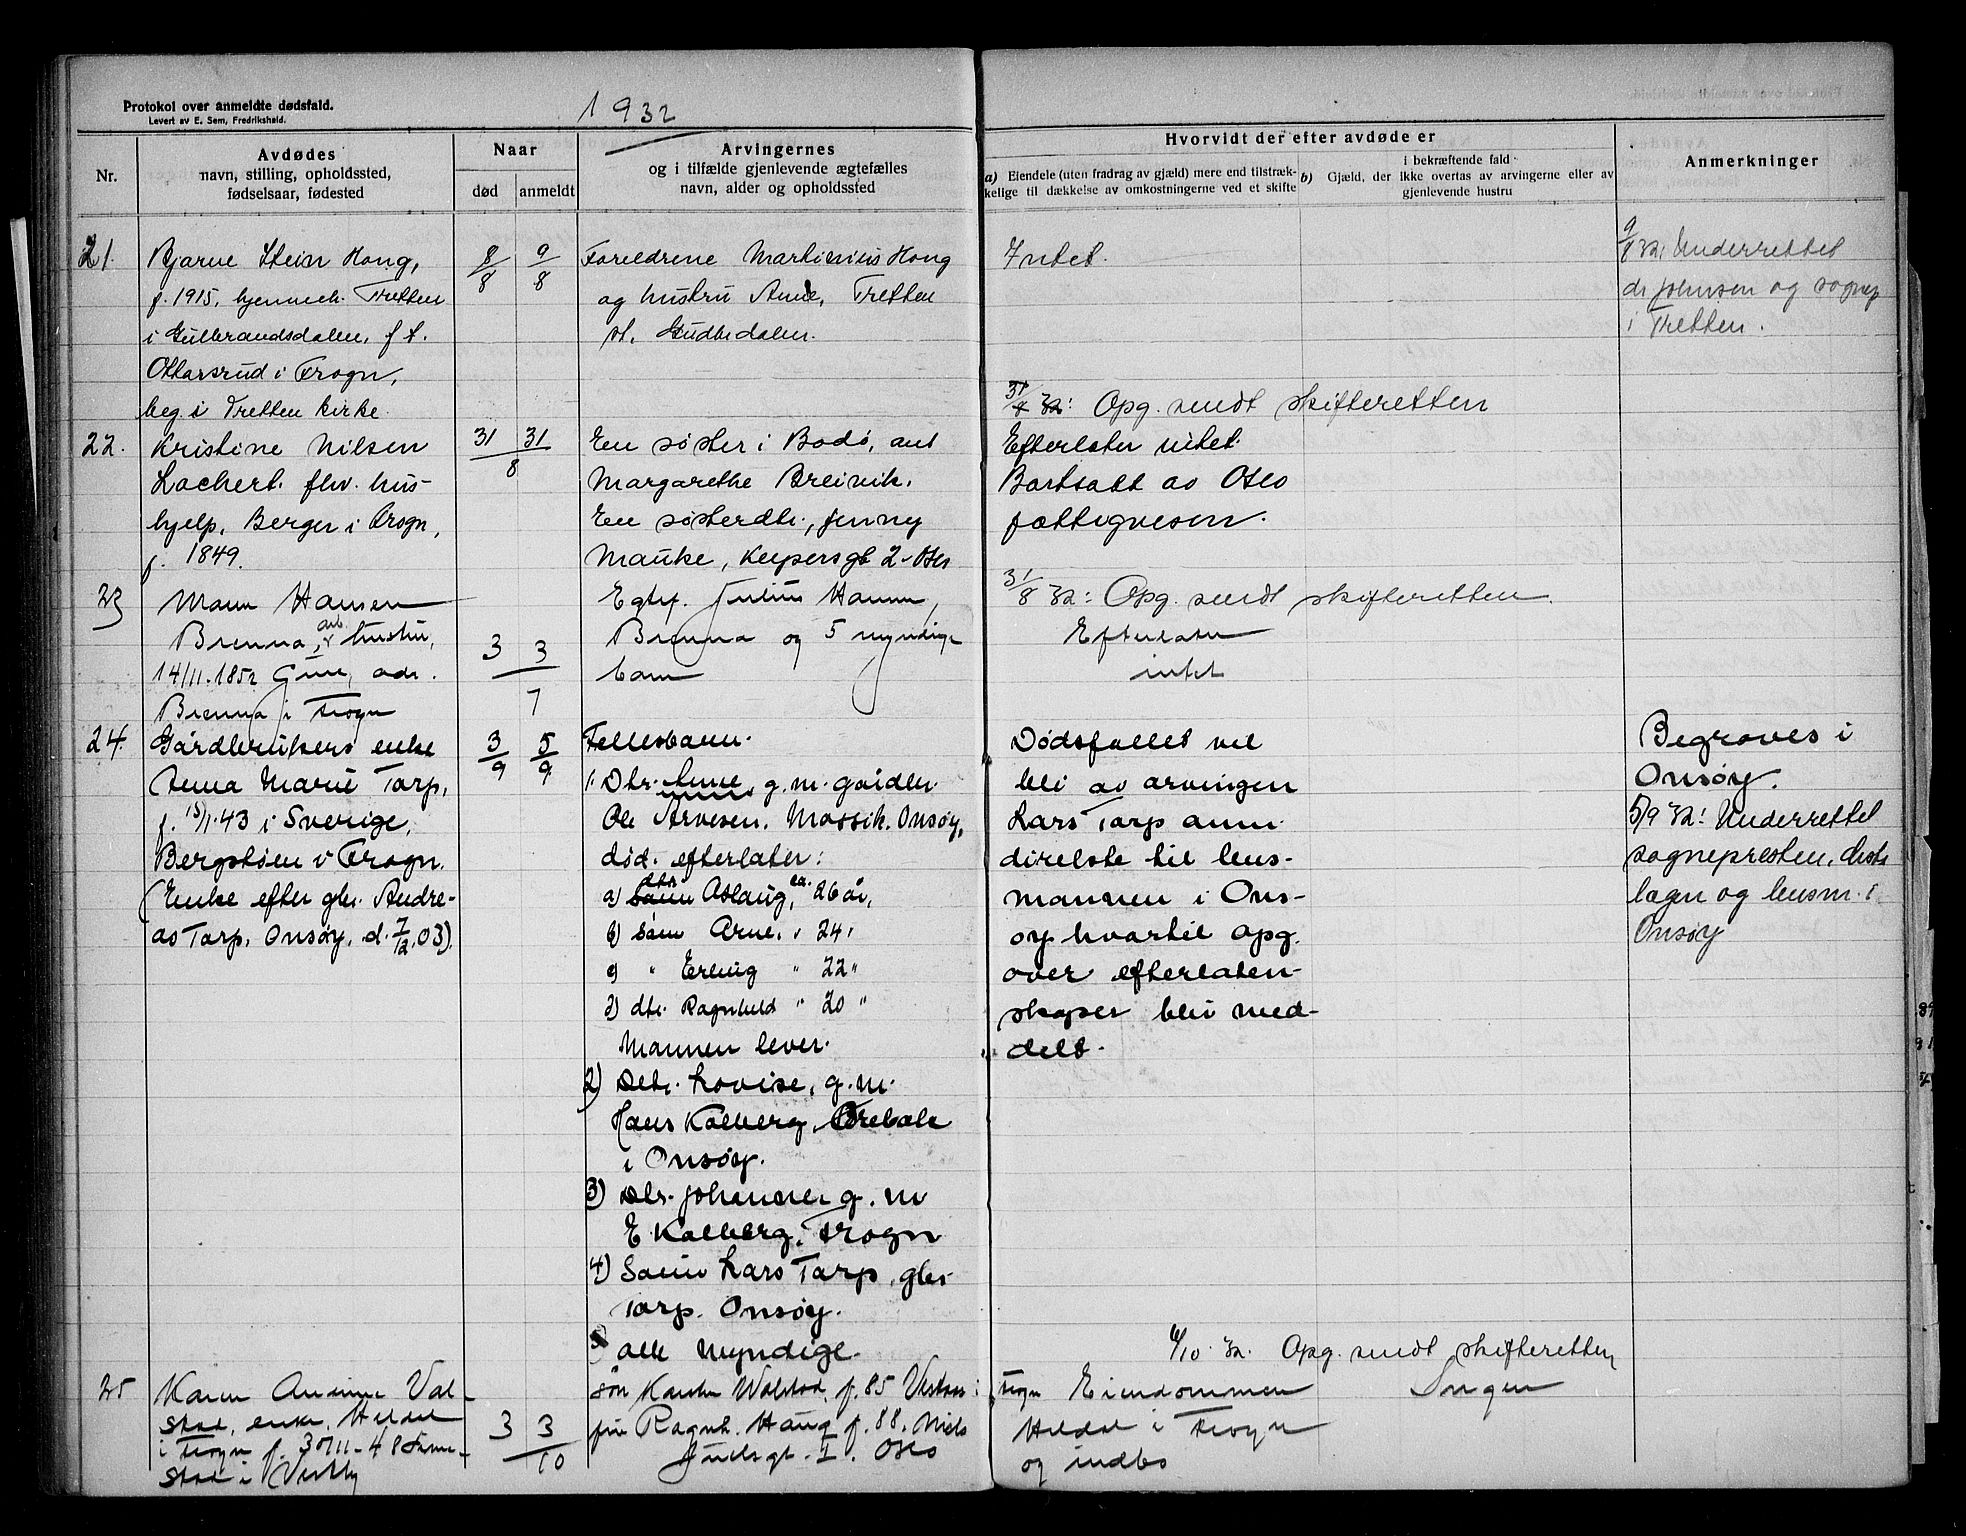 Protokol over anmeldte dødsfald.
Levert av E. Sem, Fredrikshald.
1932
Nr.
Avdødes
navn, stilling, opholdssted,
fødselsaar, fødested
Naar
død
anmeldt
Arvingernes
og i tilfælde gjenlevende ægtefælles
navn, alder og opholdssted
Hvorvidt der efter avdøde er
a) Eiendele (uten fradrag av gjæld) mere end tilstræk-
kelige til dækkelse av omkostningerne ved et skifte
b) Gjæld, der i bekræftende fald
ikke overtas av arvingerne eller av
gjenlevende hustru
Anmerkninger
21.
Bjarne Stein Hong,
f. 1915, hjemmeh. Tretten
i Gulbrandsdalen, f. t.
Ottarsrud i Frogn,
beg. i Tretten kirke.
8/8
9/8
Foreldrene Martinius Hong
og hustru Anne, Tretten
st. Gudbrdalen.
Intet.
9/8 32: Underrettet
dr Johnsen og sognep
i Tretten.
31/8 32: Opg. sendt skifteretten
22.
Kristine Nilsen
Lochert. fhv. hus-
hjelp, Berger i Frogn,
f. 1849.
31 31
8
En søster i Bodø, ant
Margarethe Breivik.
En søsterdtr., Jenny
Mauke, Keysersgt 2 - Oslo
Efterlater intet.
Bortsatt av Oslo
fattigvesen.
23
Hansen
Brenna, arb. hustru,
14/11.1852 adr.
Brenna i Frogn
3 3
7
Egtef. Julius Hansen,
Brenna og 5 myndige
barn
31/8 32: Opg. sendt skifteretten.
Efterlater
intet
24.
Gårdbrukers enke
Anna Marie Tarp,
f. 15/1.43 i Sverige,
Bergstøen i Frogn.
(Enke efter gbr. Andre-
as Tarp, Onsøy, d. 7/12.03).
3/9
5/9
Fellesbarn.
1. Dtr. Anne, g. m. gårdbr
Ole Arvesen, Mossik, Onsøy,
død. efterlater:
a) dtr Aslaug, ca. 26 år,
b) sønn Arne, " 24 "
c) " Erling " 22 "
d) dtr. Ragnhild " 20 "
Mannen lever.
2) Dtr. Lovise, g. m.
Hans Kalberg,
i Onsøy.
3) Dtr. Johanne g. m
E. Kalberg, Frogn
4) Sønn Lars Tarp, gbr
Tarp. Onsøy.
alle myndige.
Dødsfallet vil
bli av arvingen
Lars Tarp anm.
direkte til lens-
mannen i Ons-
øy hvortil opg.
over efterlaten-
skaper blir med-
delt.
Begraves i
Onsøy.
5/9 32: Underrettet
sognepresten, distr
lægen og lensm. i
Onsøy
6/10. 32. Opg. sendt skifteretten
25
Karen Andrine Wal-
stad, enke, Heldal
i Frogn f. 30/11-48
stad i Vestby
3 3
10
søn Karsten Walstad, f. 85
fru Ragnh. Haug f. 88, Niels
Juelsgt. I. Oslo
Frogn Eiendommen
Heldal i Frogn
og indbo
Ingen